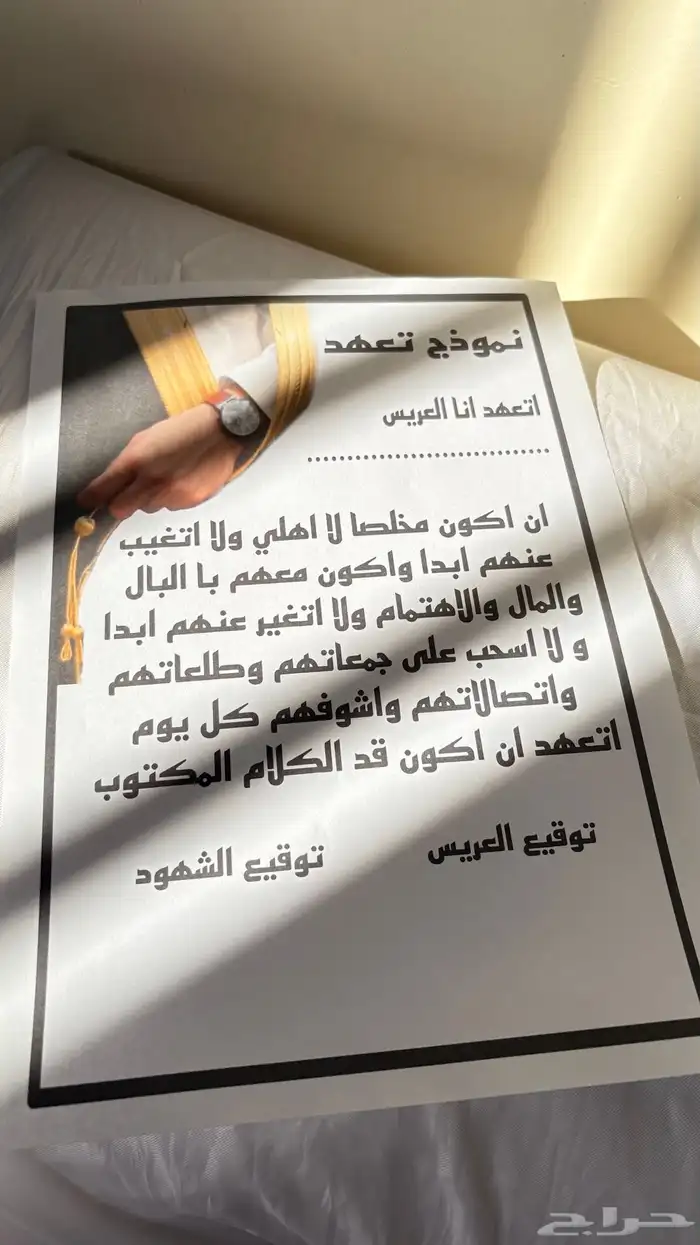 نموذج تعهد
اتعهد انا العريس
..............................
ان اكون مخلصا لا اهلي ولا اتغيب
عنهم ابدا واكون معهم با البال
والمال والاهتمام ولا اتغير عنهم ابدا
و لا اسحب على جمعاتهم وطلعاتهم
واتصالاتهم واشوفهم كل يوم
اتعهد ان اكون قد الكلام المكتوب
توقيع العريس توقيع الشهود
حراج